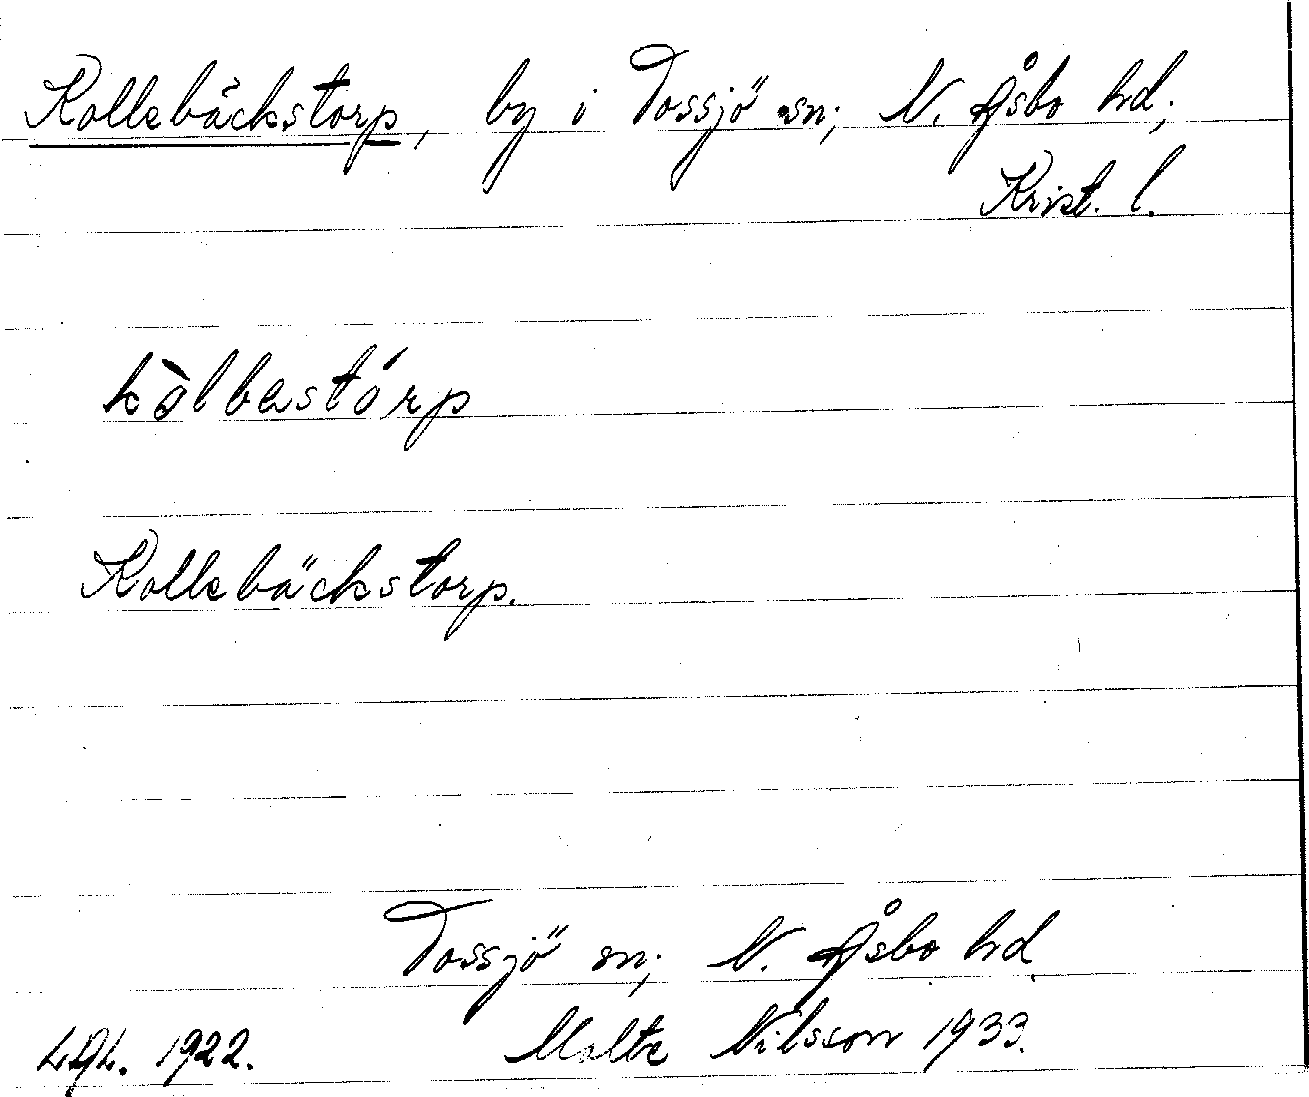 Kollebäckstorp, by i Tossjö sn; N. Åsbo hd;
Krist. l.
kòlbastórp
Kollebäckstorp.
Tossjö sn; N. Åsbo hd
1922. Malte Nilsson 1933.